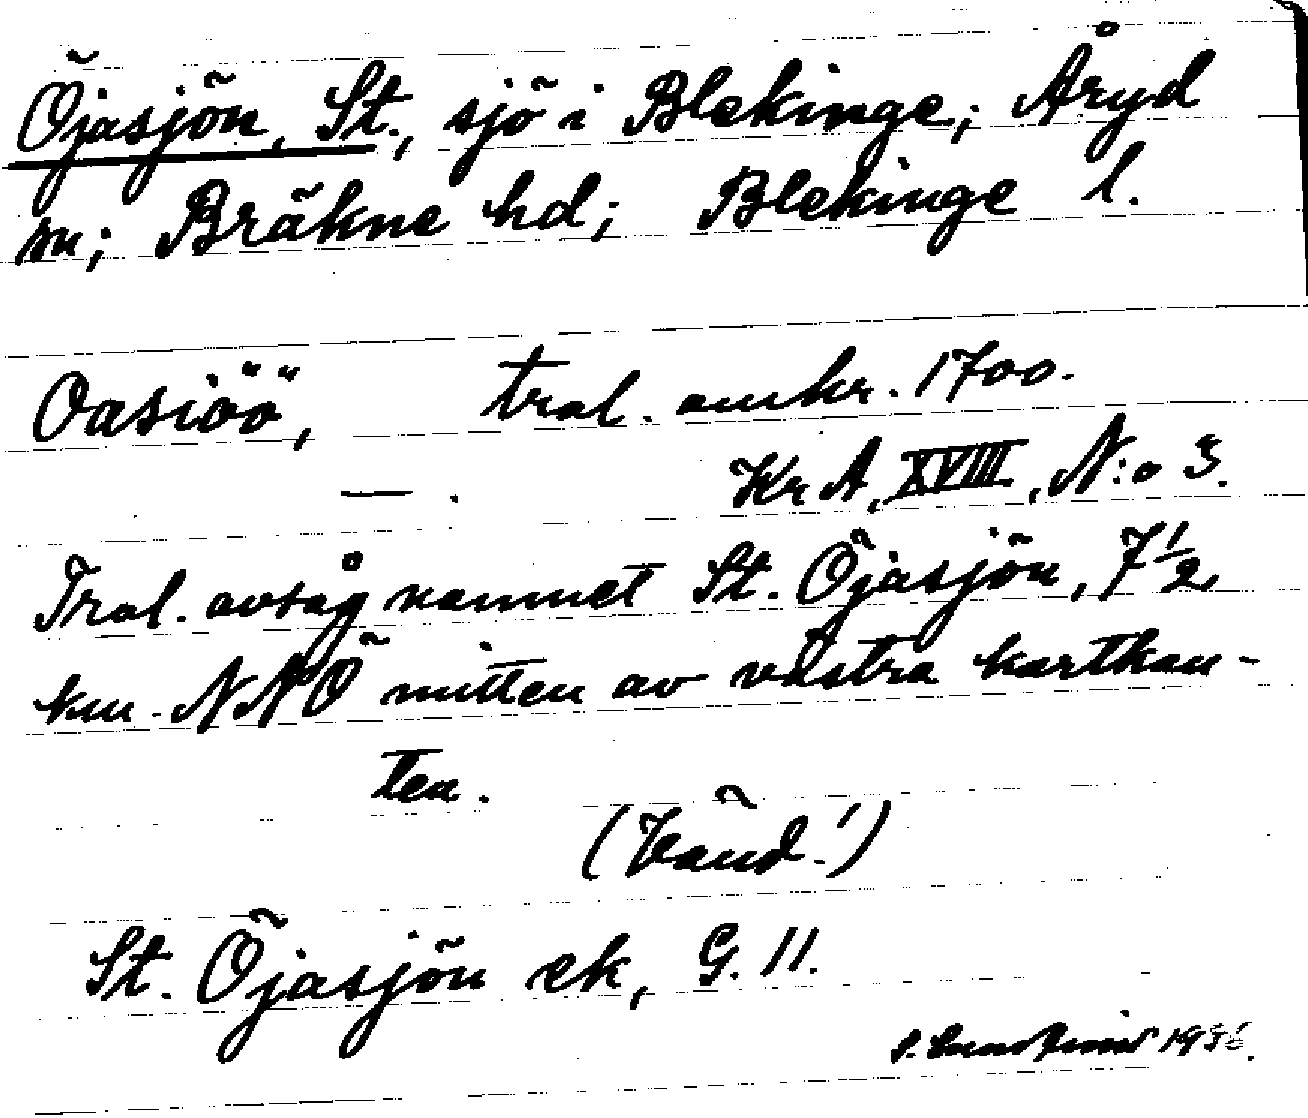 Öjasjön, St., sjö i Blekinge; Åryd
sn; Bräkne hd; Blekinge l.
Oasiöö, tral. omkr. 1700.
— . KrA, XVIII, N:o 3.
Tral. avsåg namnet St. Öjasjön, 7½
km. NNÖ mitten av västra kartkan-
ten.
(Vänd!)
St. Öjasjön ek, G. 11.
1936.